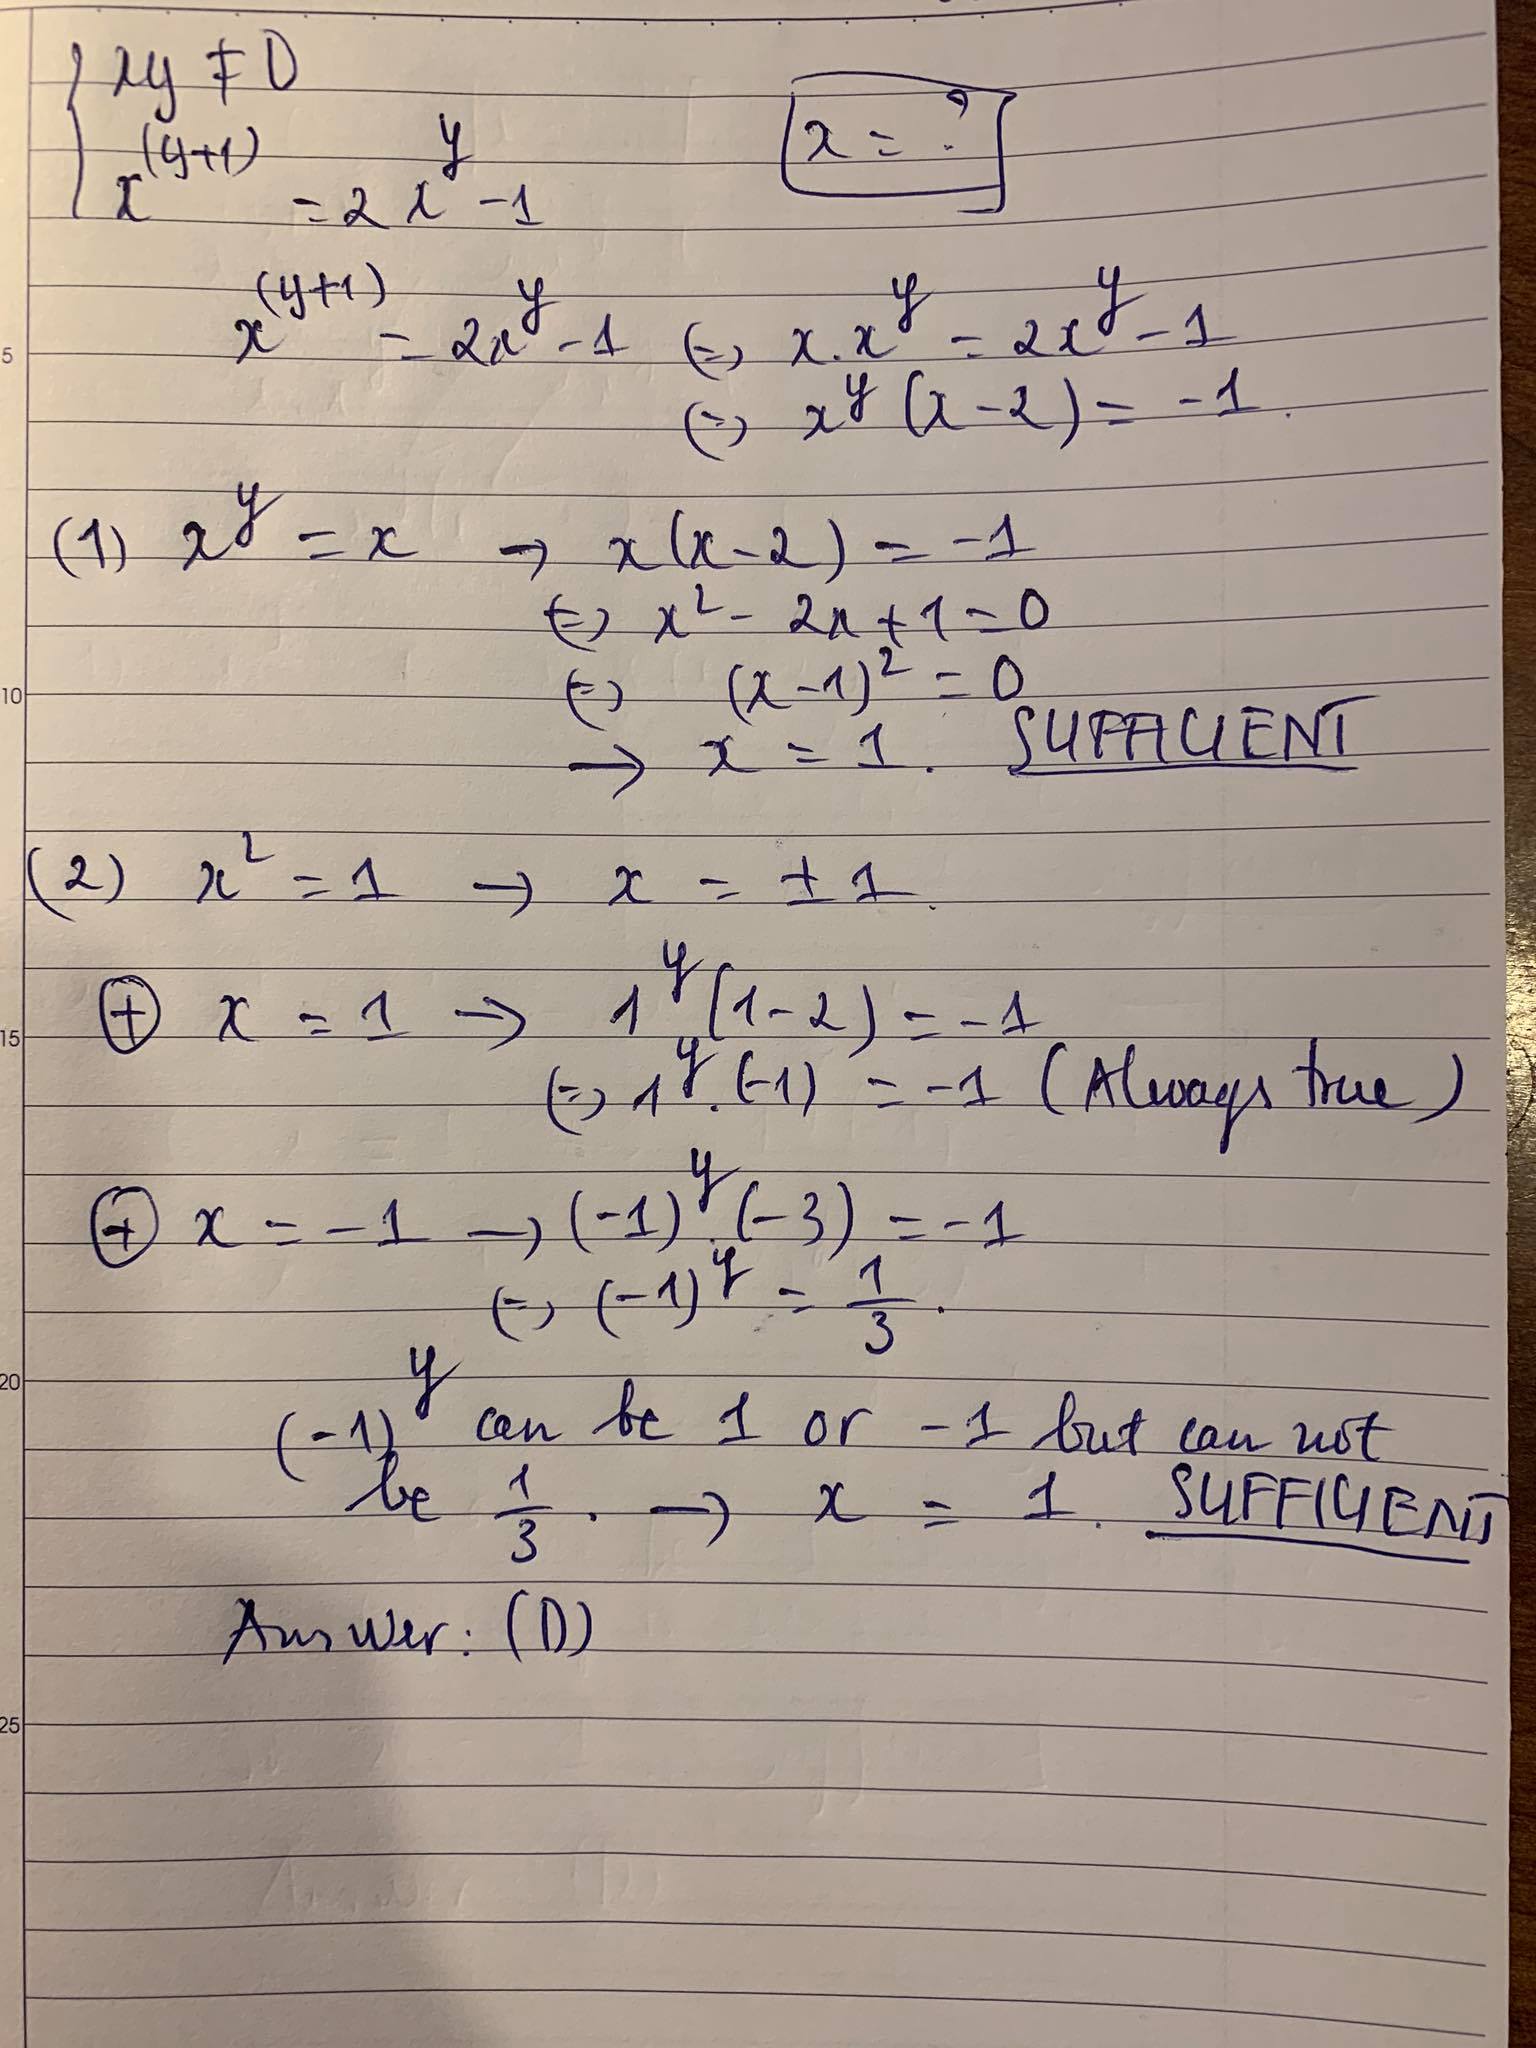 xy ≠ 0
x^(y+1) = 2x^y - 1
x = ?
x^(y+1) = 2x^y - 1 (=) x.x^y = 2x^y - 1
(=) x^y (x-2) = -1.
(1) x^y = x → x(x-2) = -1
(=) x² - 2x + 1 = 0
(=) (x-1)² = 0
→ x = 1. SUFFICIENT
(2) x² = 1 → x = ±1.
⊕ x = 1 → 1^y (1-2) = -1
(=) 1^y.(-1) = -1 (Always true)
⊕ x = -1 → (-1)^y.(-3) = -1
(=) (-1)^y = 1/3.
(-1)^y can be 1 or -1 but can not
be 1/3. → x = 1. SUFFICIENT
Answer: (D)
5
10
15
20
25